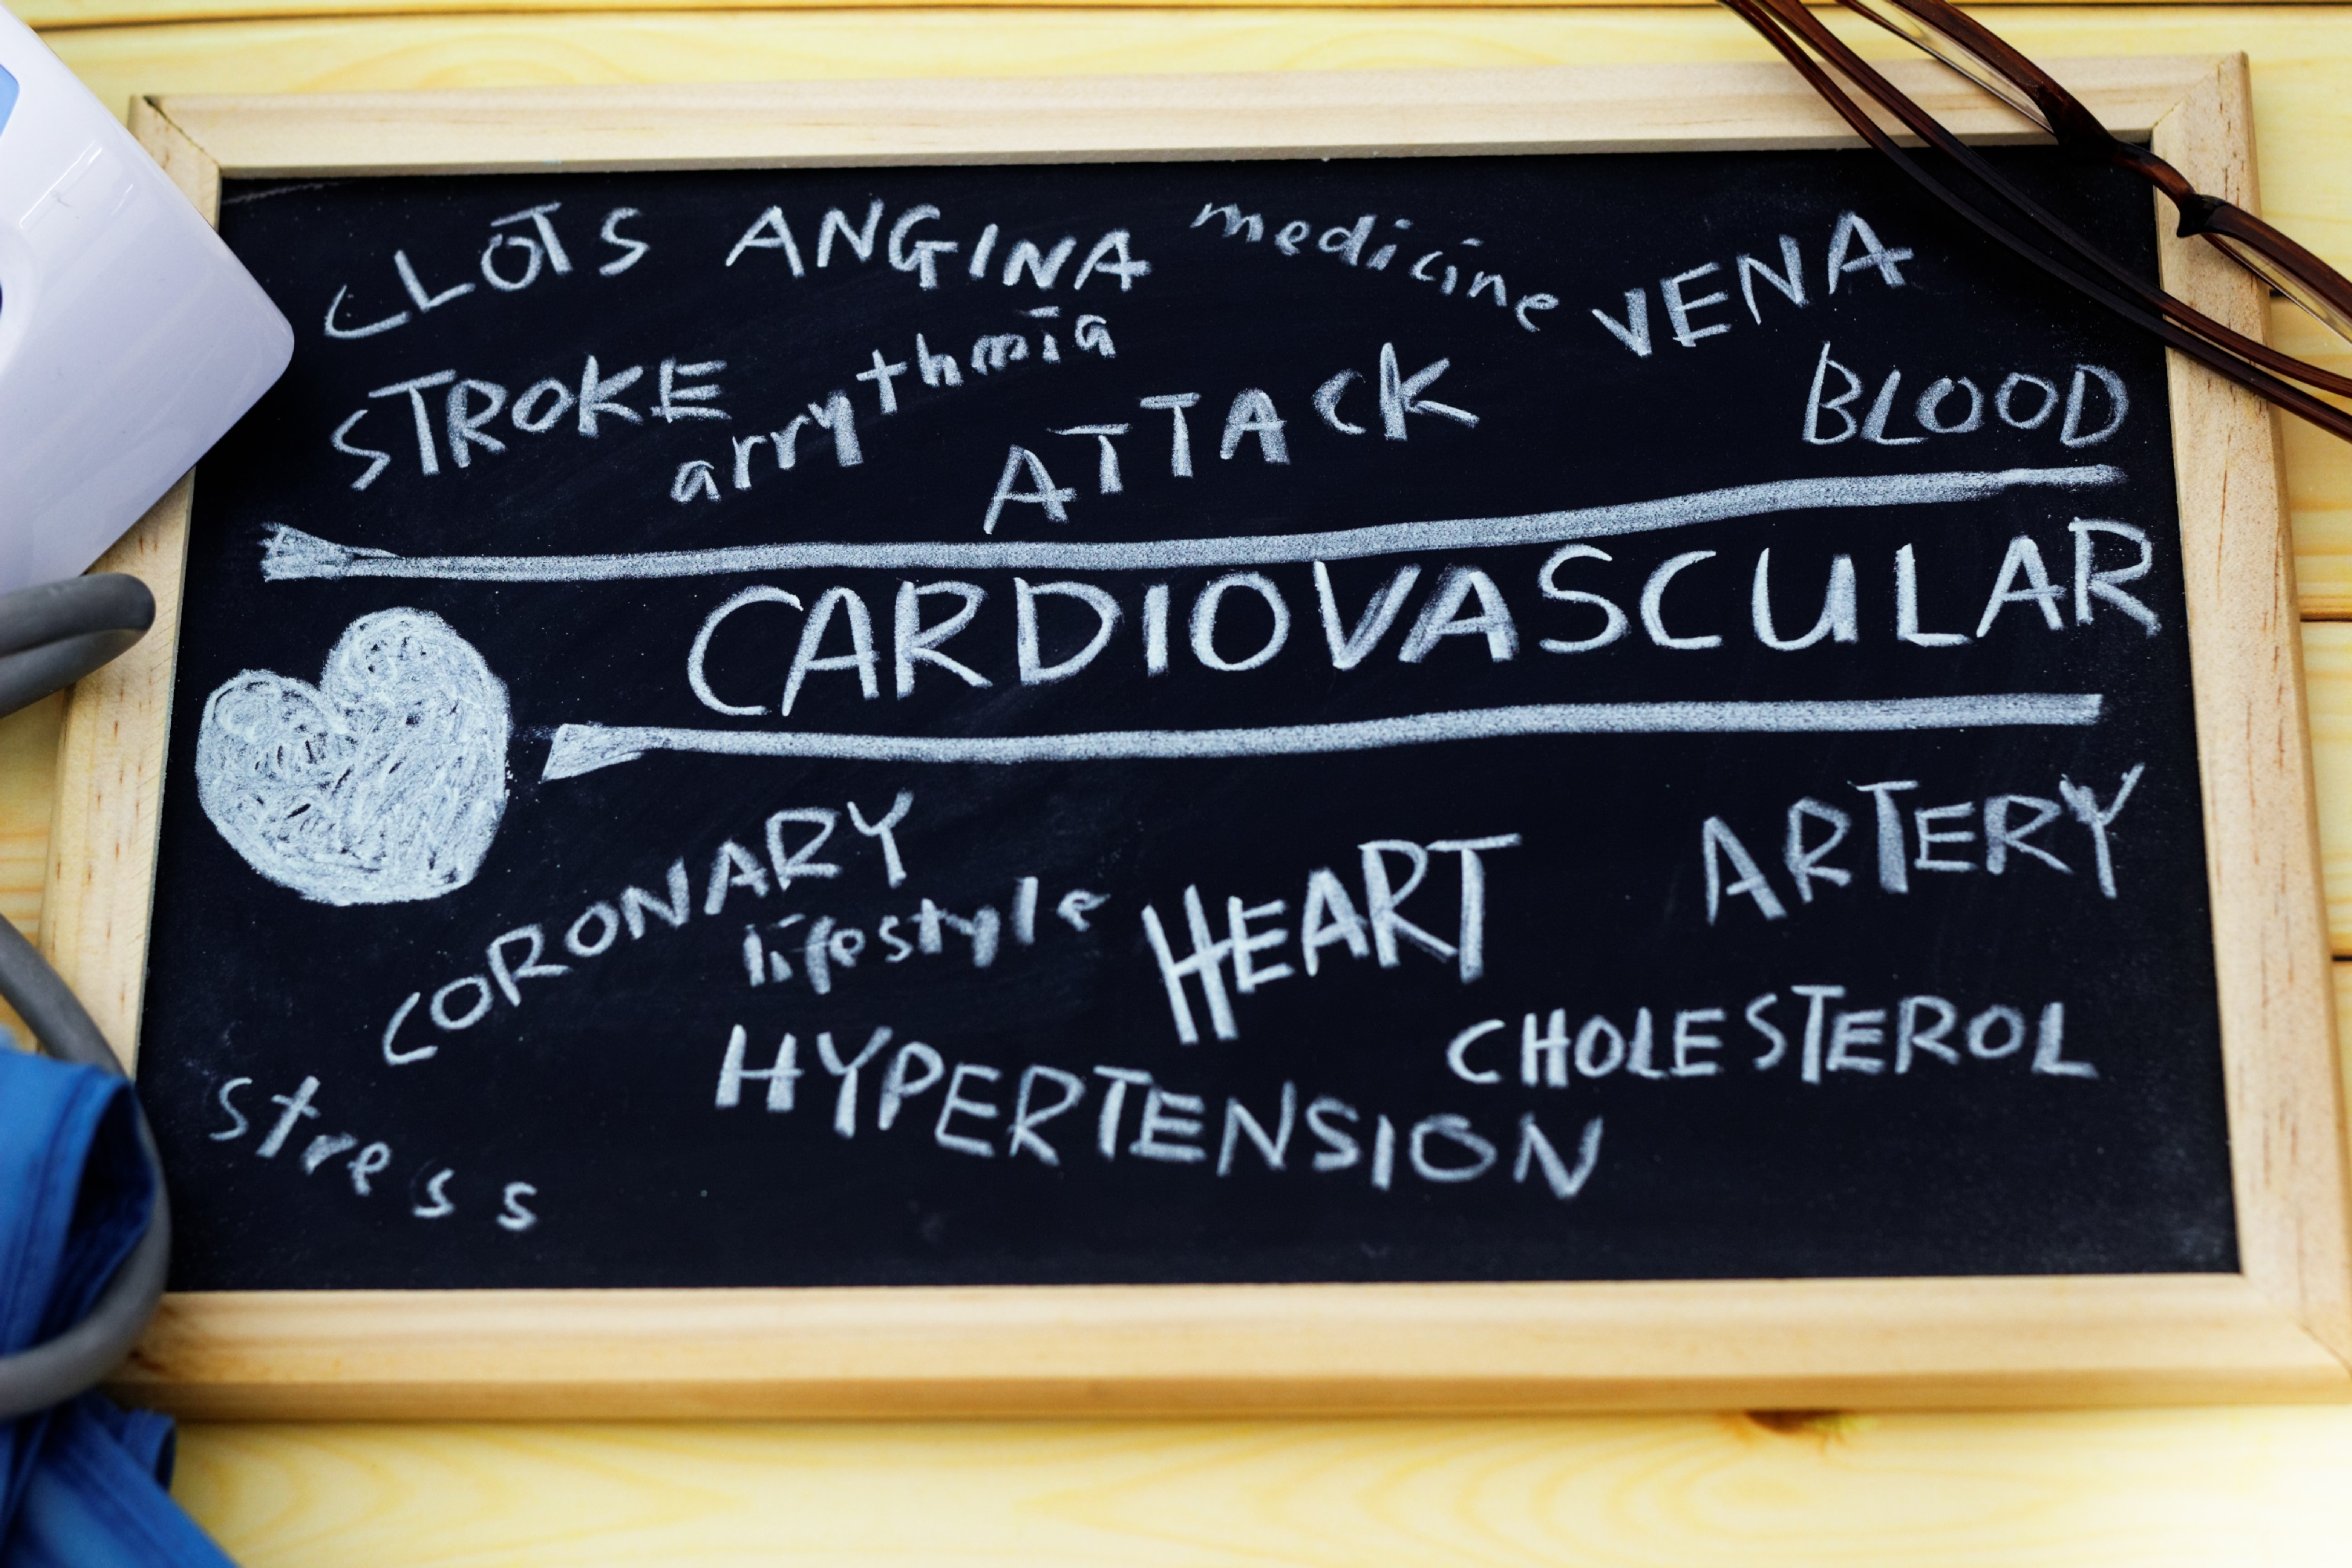 CLOTS ANGINA medicine VENA
STROKE arrythmia ATTACK BLOOD
CARDIOVASCULAR
CORONARY lifestyle HEART ARTERY
stress HYPERTENSION CHOLESTEROL